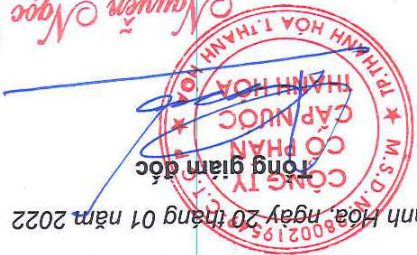 anh Hóa, ngày 20 tháng 01 năm 2022
Tổng giám đốc
M.S.D.N
CÔNG TY
CỔ PHẦN
CẤP NƯỚC
THANH HÓA
TP. THANH HÓA T. THANH HÓA
Nguyễn Ngọc